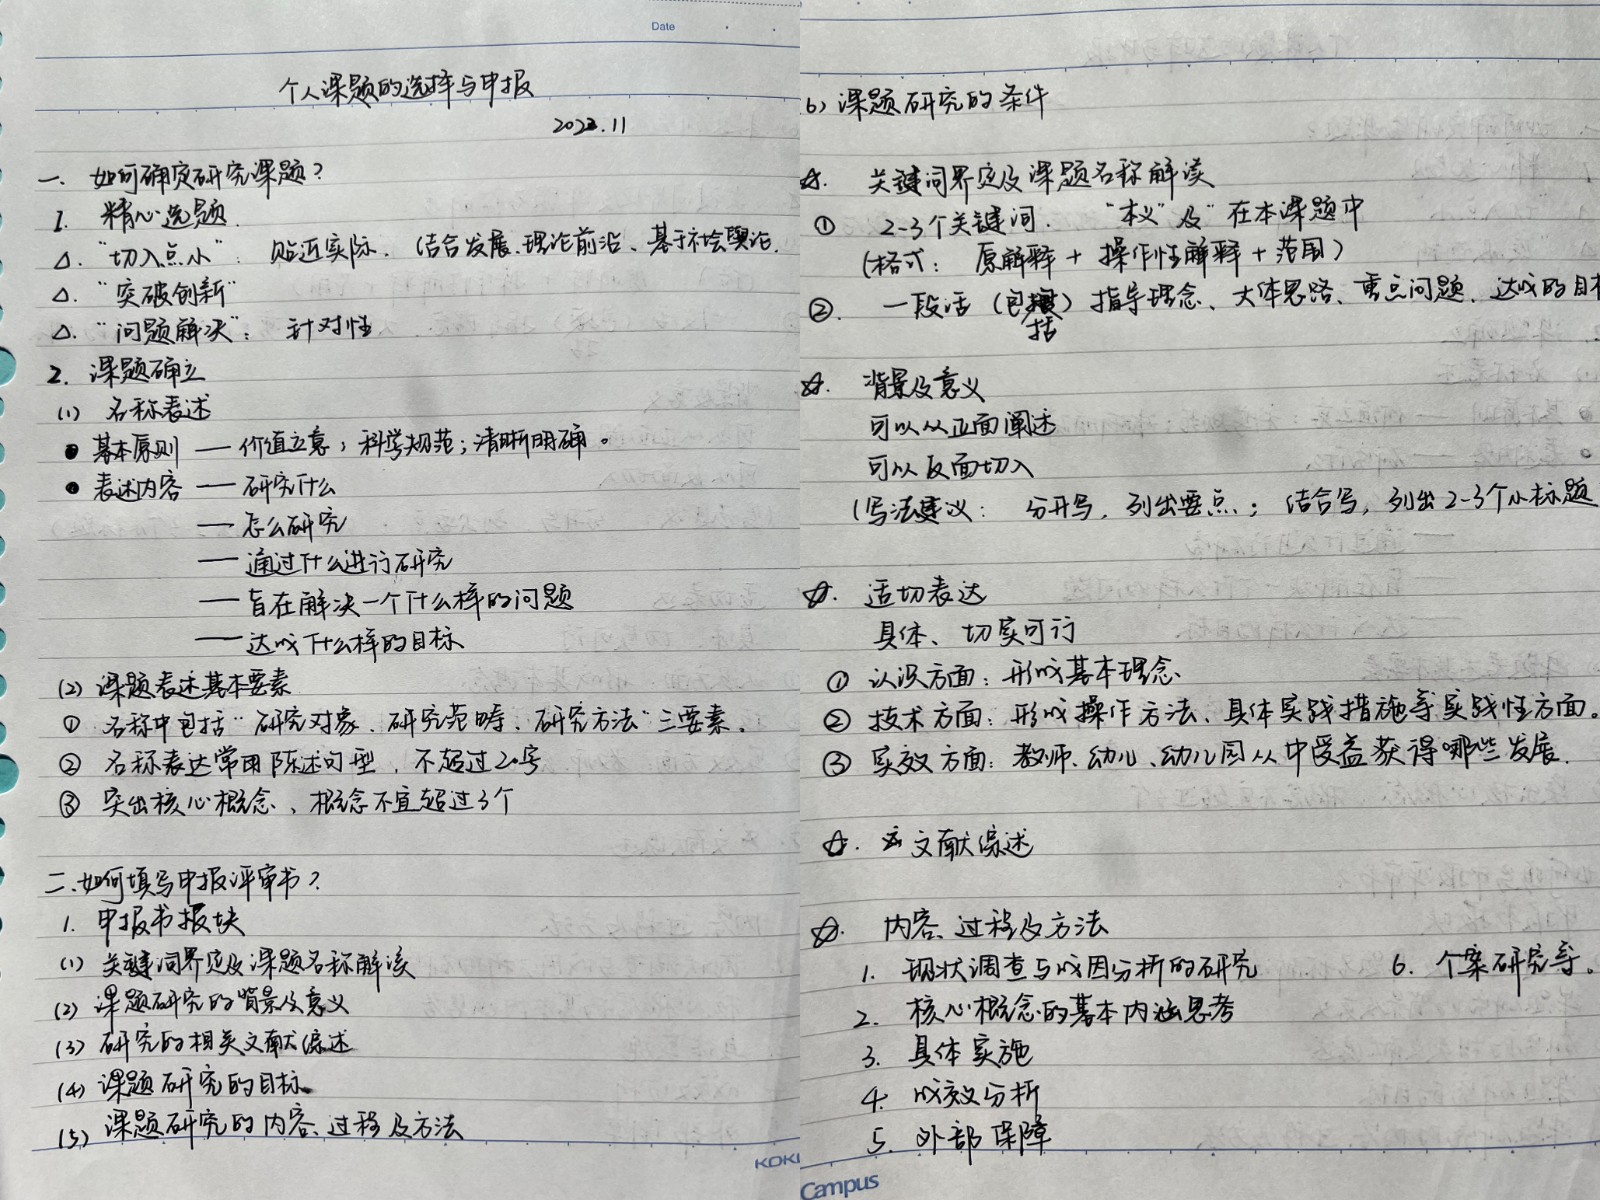 Date
个人课题的选择与申报
2022.11
一. 如何确定研究课题?
1. 精心选题.
△. "切入点小": 贴近实际. 结合发展、理论前沿、基于社会舆论.
△. "突破创新"
△. "问题解决": 针对性
2. 课题确立
(1) 名称表述
● 基本原则 —— 价值立意; 科学规范; 清晰明确。
● 表述内容 —— 研究什么
—— 怎么研究
—— 通过什么进行研究
—— 旨在解决一个什么样的问题
—— 达成什么样的目标
(2) 课题表述基本要素
① 名称中包括"研究对象、研究范畴、研究方法"三要素.
② 名称表达常用陈述句型, 不超过20字
③ 突出核心概念、概念不宜超过3个
二.如何填写申报评审书?
1. 申报书报块
(1) 关键词界定及课题名称解读
(2) 课题研究的背景及意义
(3) 研究的相关文献综述
(4) 课题研究的目标
(5) 课题研究的内容、过程及方法
KOKU
6) 课题研究的条件
☆. 关键词界定及课题名称解读
① 2-3个关键词. "本义"及"在本课题中
(格式: 原解释 + 操作性解释 + 范围)
②. 一段话 (包括) 指导理念、大体思路、重点问题、达成的目标
☆. 背景及意义
可以从正面阐述
可以反面切入
(写法建议: 分开写, 列出要点; 结合写, 列出2-3个小标题
☆. 适切表达
具体、切实可行
① 认识方面: 形成基本理念
② 技术方面: 形成操作方法、具体实践措施等实践性方面。
③ 实效方面: 教师、幼儿、幼儿园从中受益获得哪些发展.
☆. 文献综述
☆. 内容、过程及方法
1. 现状调查与成因分析的研究
6. 个案研究等。
2. 核心概念的基本内涵思考
3. 具体实施
4. 成效分析
5. 外部保障
Campus